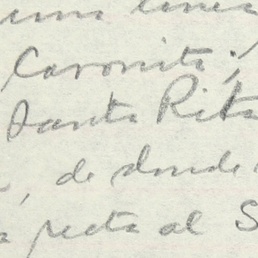 una línea
Caronita;
Santa Rita
, de donde
recta al S